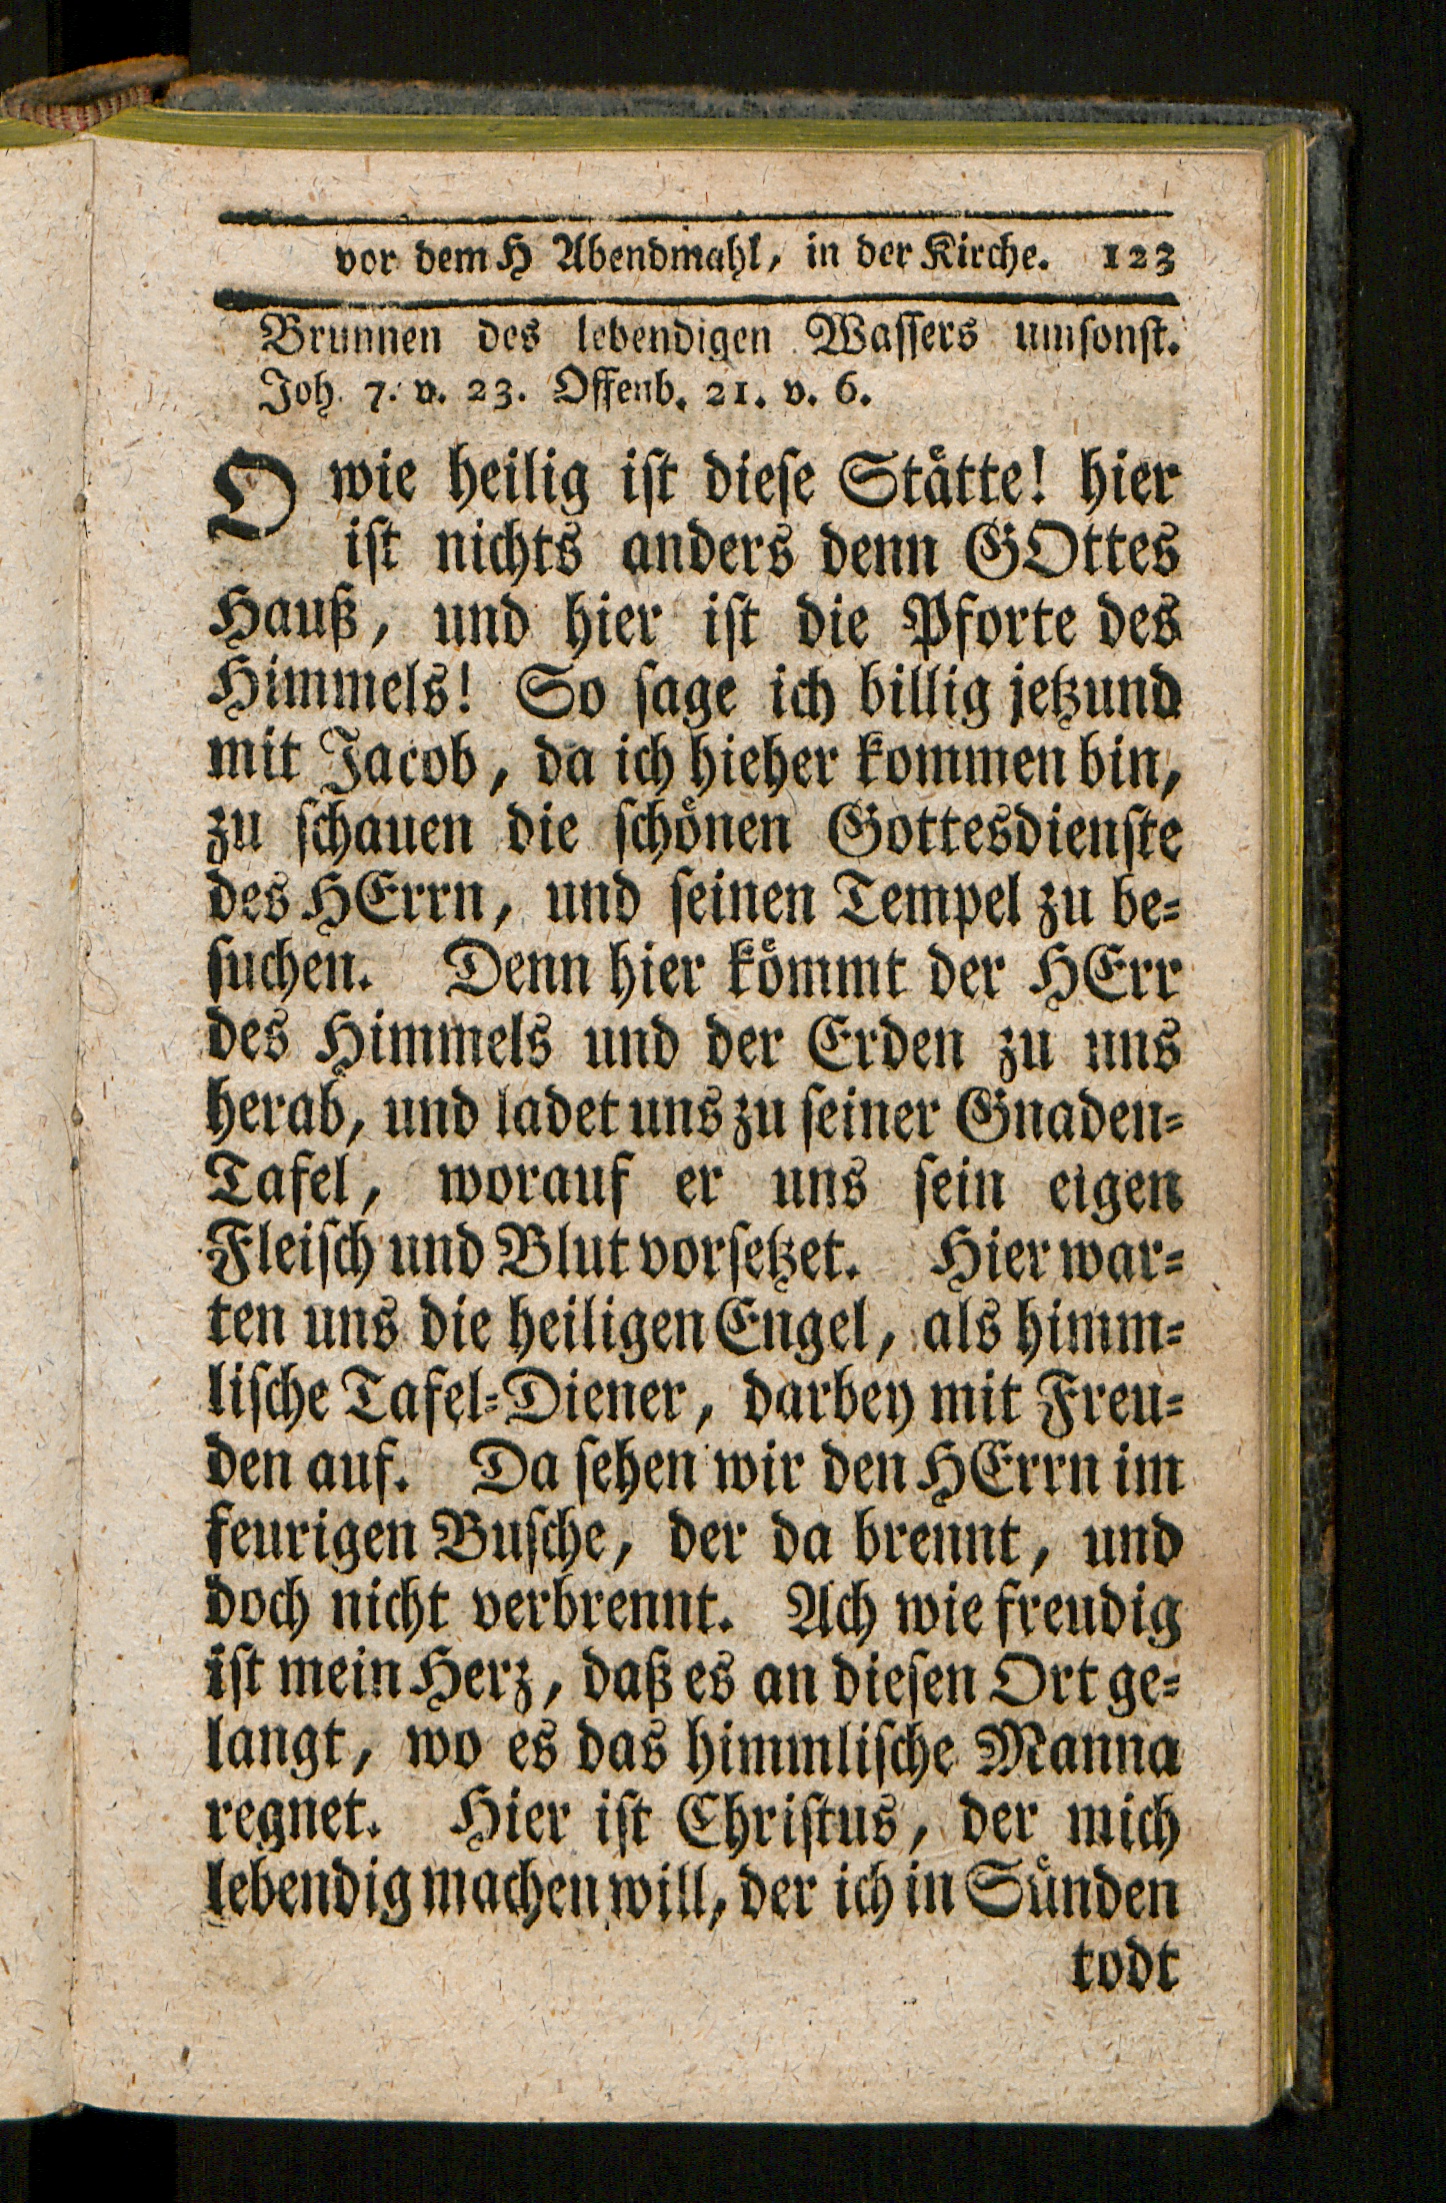 vor dem H Abendmahl, in der Kirche. 123
Brunnen des lebendigen Wassers umsonst.
Joh. 7. v. 23. Offenb. 21. v. 6.
O wie heilig ist diese Stätte! hier
ist nichts anders denn GOttes
Hauß, und hier ist die Pforte des
Himmels! So sage ich billig jetzund
mit Jacob, da ich hieher kommen bin,
zu schauen die schönen Gottesdienste
des HErrn, und seinen Tempel zu be-
suchen. Denn hier kömmt der HErr
des Himmels und der Erden zu uns
herab, und ladet uns zu seiner Gnaden-
Tafel, worauf er uns sein eigen
Fleisch und Blut vorsetzet. Hier war-
ten uns die heiligen Engel, als himm-
lische Tafel-Diener, darbey mit Freu-
den auf. Da sehen wir den HErrn im
feurigen Busche, der da brennt, und
doch nicht verbrennt. Ach wie freudig
ist mein Herz, daß es an diesen Ort ge-
langt, wo es das himmlische Manna
regnet. Hier ist Christus, der mich
lebendig machen will, der ich in Sünden
todt